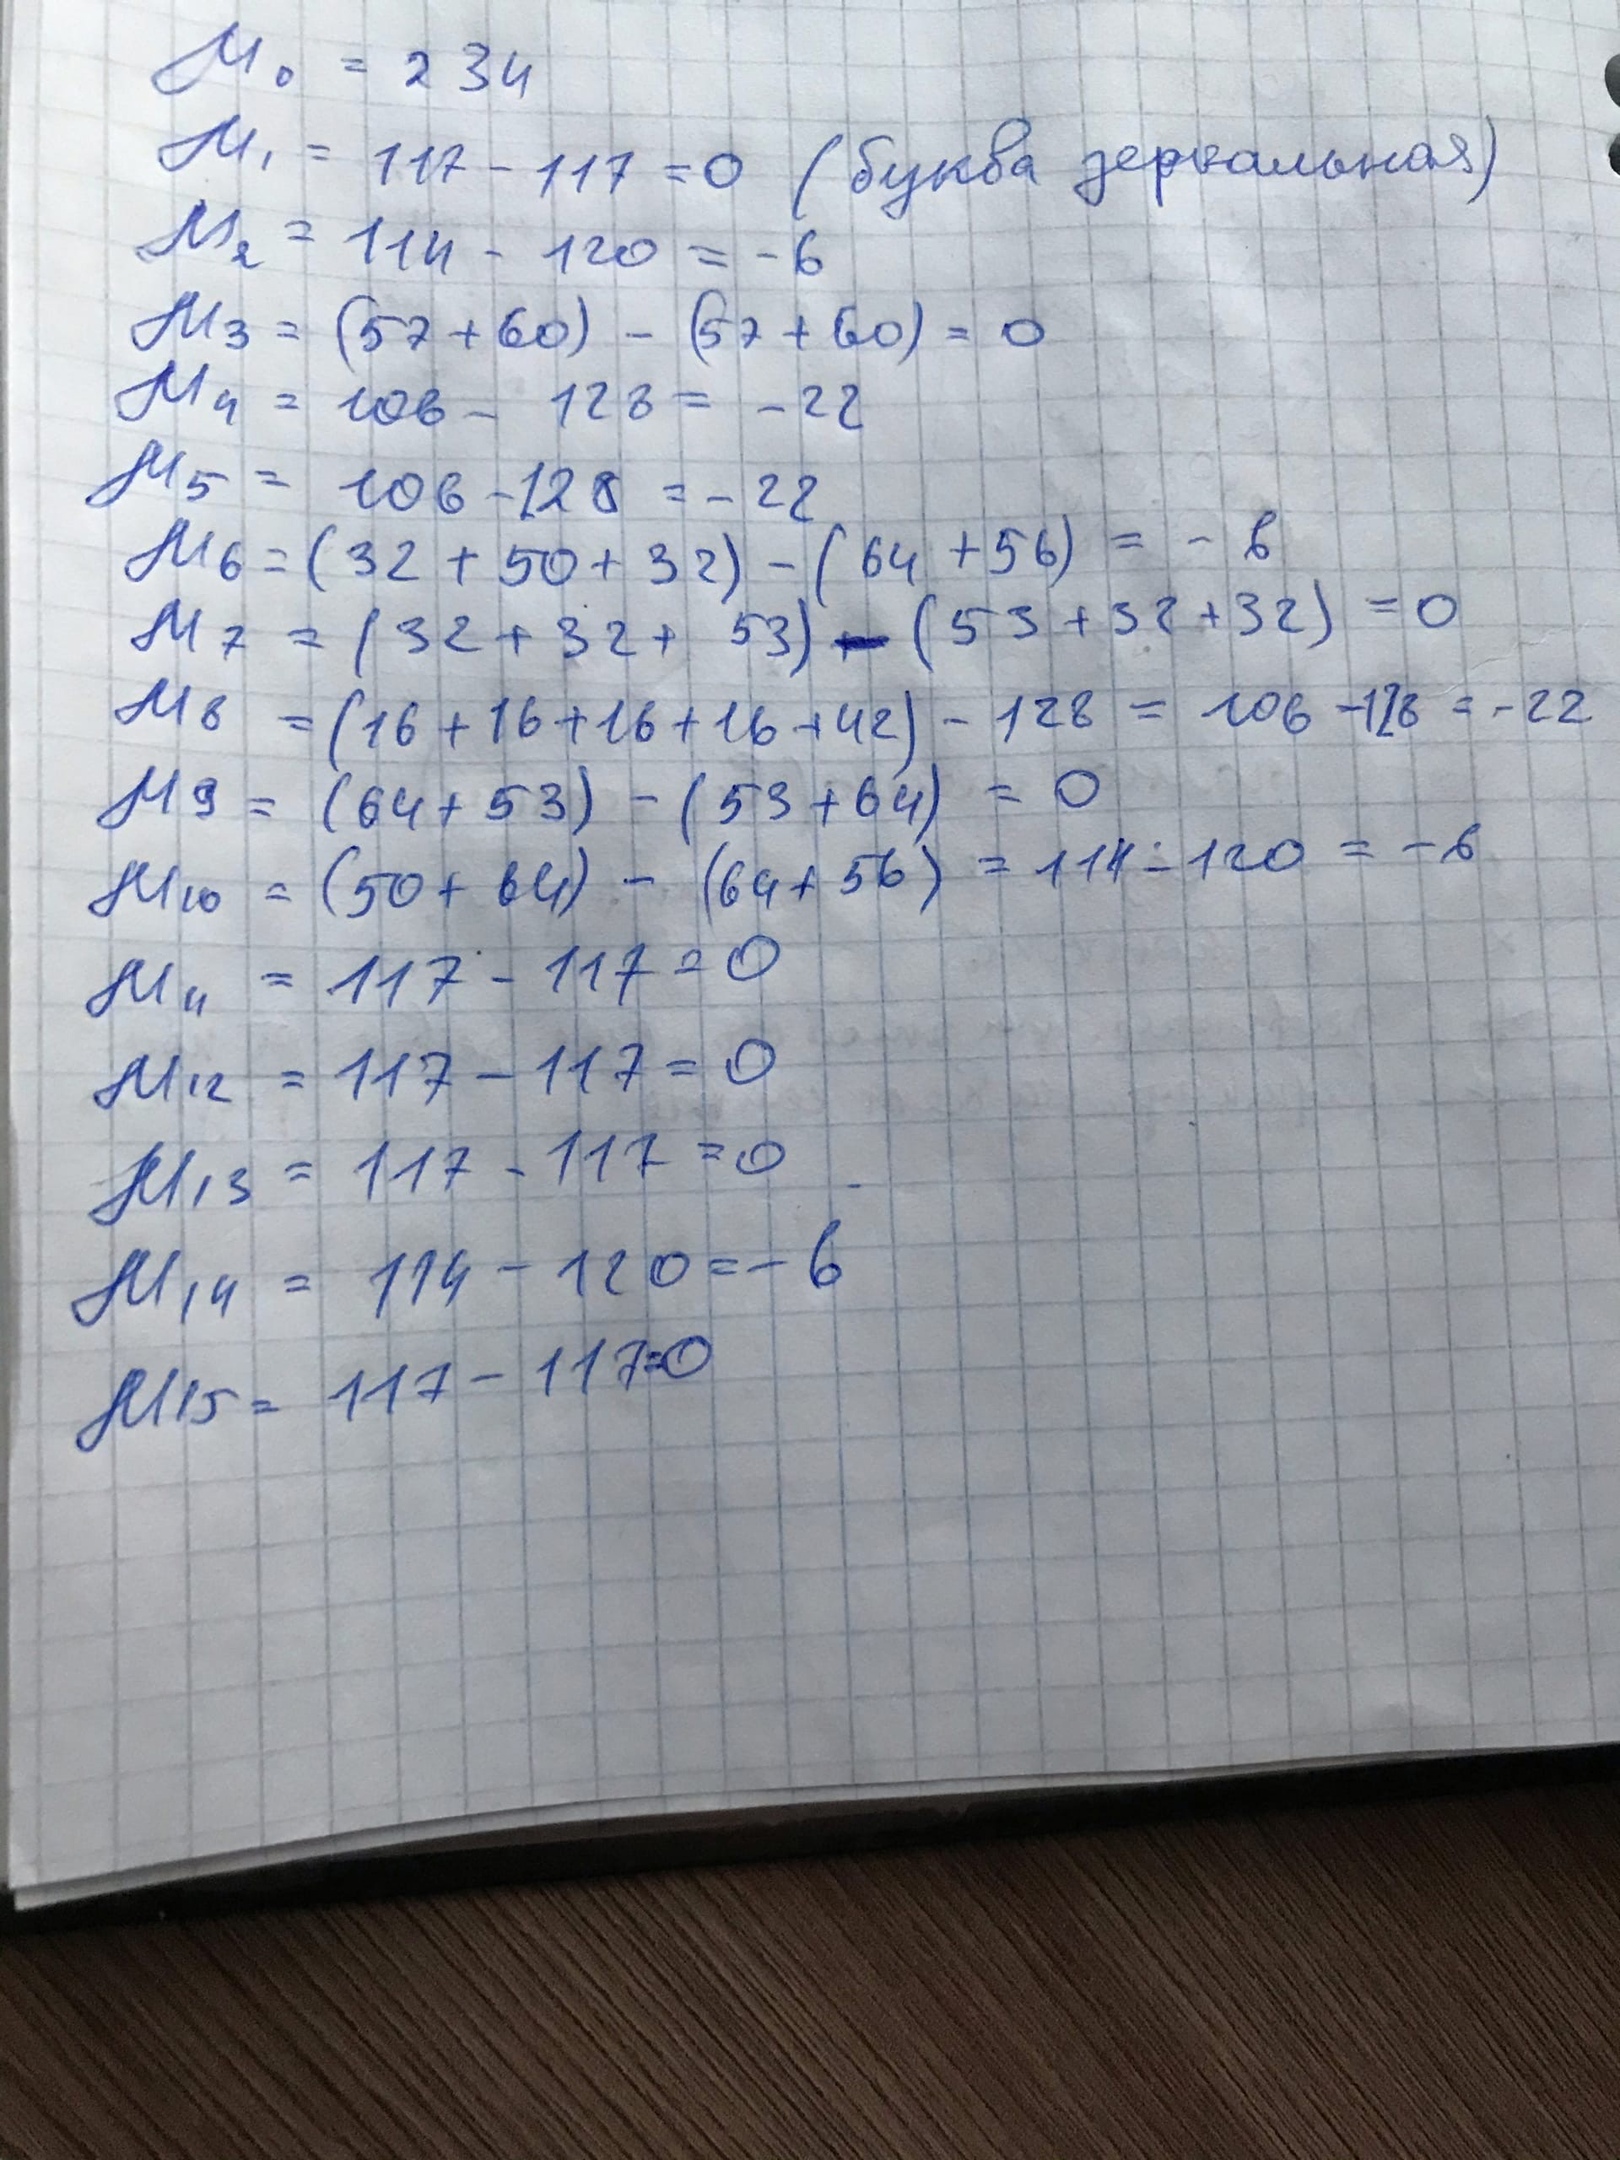 М₀ = 234
М₁ = 117 - 117 = 0 (буква зеркальная)
М₂ = 114 - 120 = -6
М3 = (57 + 60) - (57 + 60) = 0
М4 = 106 - 128 = -22
М5 = 106 - 128 = -22
М6 = (32 + 50 + 32) - (64 + 56) = - 6
М7 = (32 + 32 + 53) - (53 + 32 + 32) = 0
М8 = (16 + 16 + 16 + 16 + 42) - 128 = 106 - 128 = -22
М9 = (64 + 53) - (53 + 64) = 0
М10 = (50 + 64) - (64 + 56) = 114 - 120 = -6
М11 = 117 - 117 = 0
М12 = 117 - 117 = 0
М13 = 117 - 117 = 0
М14 = 114 - 120 = -6
М15 = 117 - 117 = 0